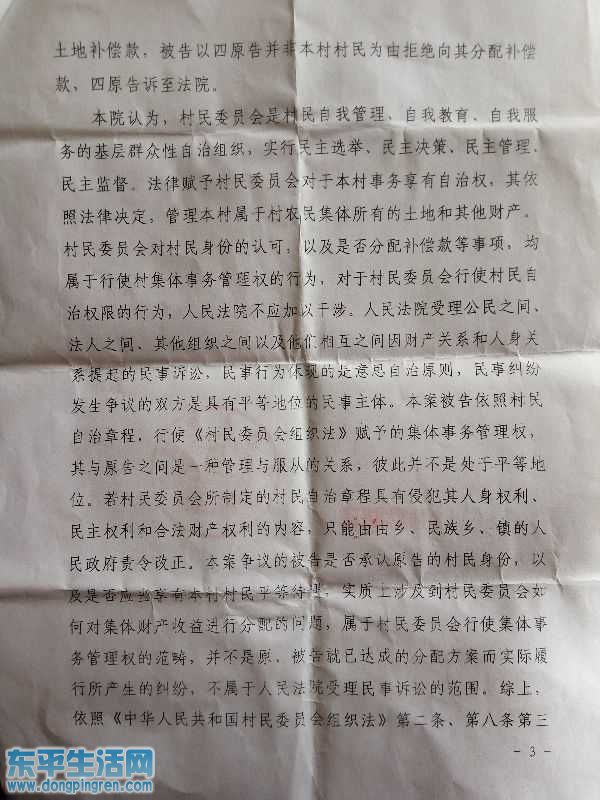 土地补偿款，被告以四原告并非本村村民为由拒绝向其分配补偿
款，四原告诉至法院。
本院认为，村民委员会是村民自我管理、自我教育、自我服
务的基层群众性自治组织，实行民主选举、民主决策、民主管理、
民主监督。法律赋予村民委员会对于本村事务享有自治权，其依
照法律决定，管理本村属于村农民集体所有的土地和其他财产。
村民委员会对村民身份的认可，以及是否分配补偿款等事项，均
属于行使村集体事务管理权的行为，对于村民委员会行使村民自
治权限的行为，人民法院不应加以干涉。人民法院受理公民之间、
法人之间、其他组织之间以及他们相互之间因财产关系和人身关
系提起的民事诉讼，民事行为体现的是意思自治原则，民事纠纷
发生争议的双方是具有平等地位的民事主体。本案被告依照村民
自治章程，行使《村民委员会组织法》赋予的集体事务管理权，
其与原告之间是一种管理与服从的关系，彼此并不是处于平等地
位。若村民委员会所制定的村民自治章程具有侵犯其人身权利、
民主权利和合法财产权利的内容，只能由由乡、民族乡、镇的人
民政府责令改正。本案争议的被告是否承认原告的村民身份，以
及是否应当享有本村村民平等待遇，实质上涉及到村民委员会如
何对集体财产收益进行分配的问题，属于村民委员会行使集体事
务管理权的范畴，并不是原、被告就已达成的分配方案而实际履
行所产生的纠纷，不属于人民法院受理民事诉讼的范围。综上，
依照《中华人民共和国村民委员会组织法》第二条、第八条第三
- 3 -
东平生活网
www.dongpingren.com